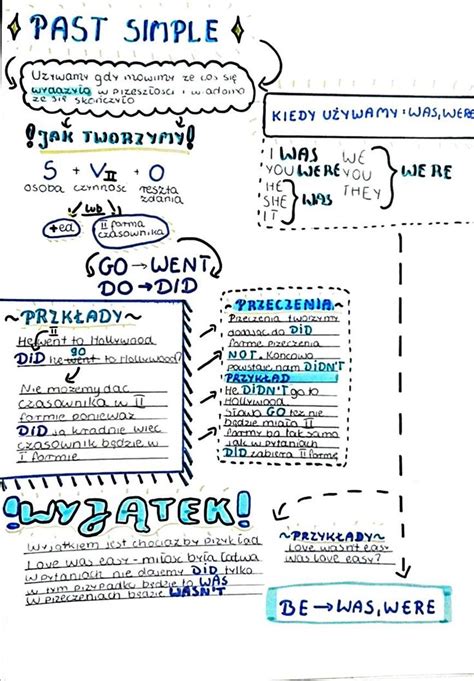 PAST SIMPLE
Używamy gdy mówimy że coś się
wydażyło w przeszłości i wiadomo
że się skończyło
KIEDY UŻYWAMY: WAS, WERE
!JAK TWORZYMY!
S + VII + O
osoba czynność reszta
zdania
lub
+ed
II forma
czasownika
I WAS
YOU WERE
HE
SHE
IT
WAS
WE
YOU
THEY
WERE
GO → WENT
DO → DID
~PRZKŁADY~
II
He went to Hollywood
go
DID he went to Hollywood?
Nie możemy dać
czasownika w II
formie ponieważ
DID ja kradnie więc
czasownik będzie w
I formie
~PRZECZENIA~
Przeczenia tworzymy
dodając do DID
formę przeczenia
NOT. Końcowo
powstaje nam DIDN'T
PRZYKŁAD
He DIDN'T go to
Hollywood
Słowo GO też nie
będzie miało II
formy bo tak samo
jak w pytaniach
DID zabiera II formę
!WYJĄTEK!
Wyjątkiem jest chociażby przykład
Love was easy - miłość była łatwa
W pytaniach nie dajemy DID tylko
w tym przypadku będzie to WAS
W przeczeniach będzie WASN'T
~PRZYKŁADY~
Love wasn't easy
Was love easy?
BE → WAS, WERE